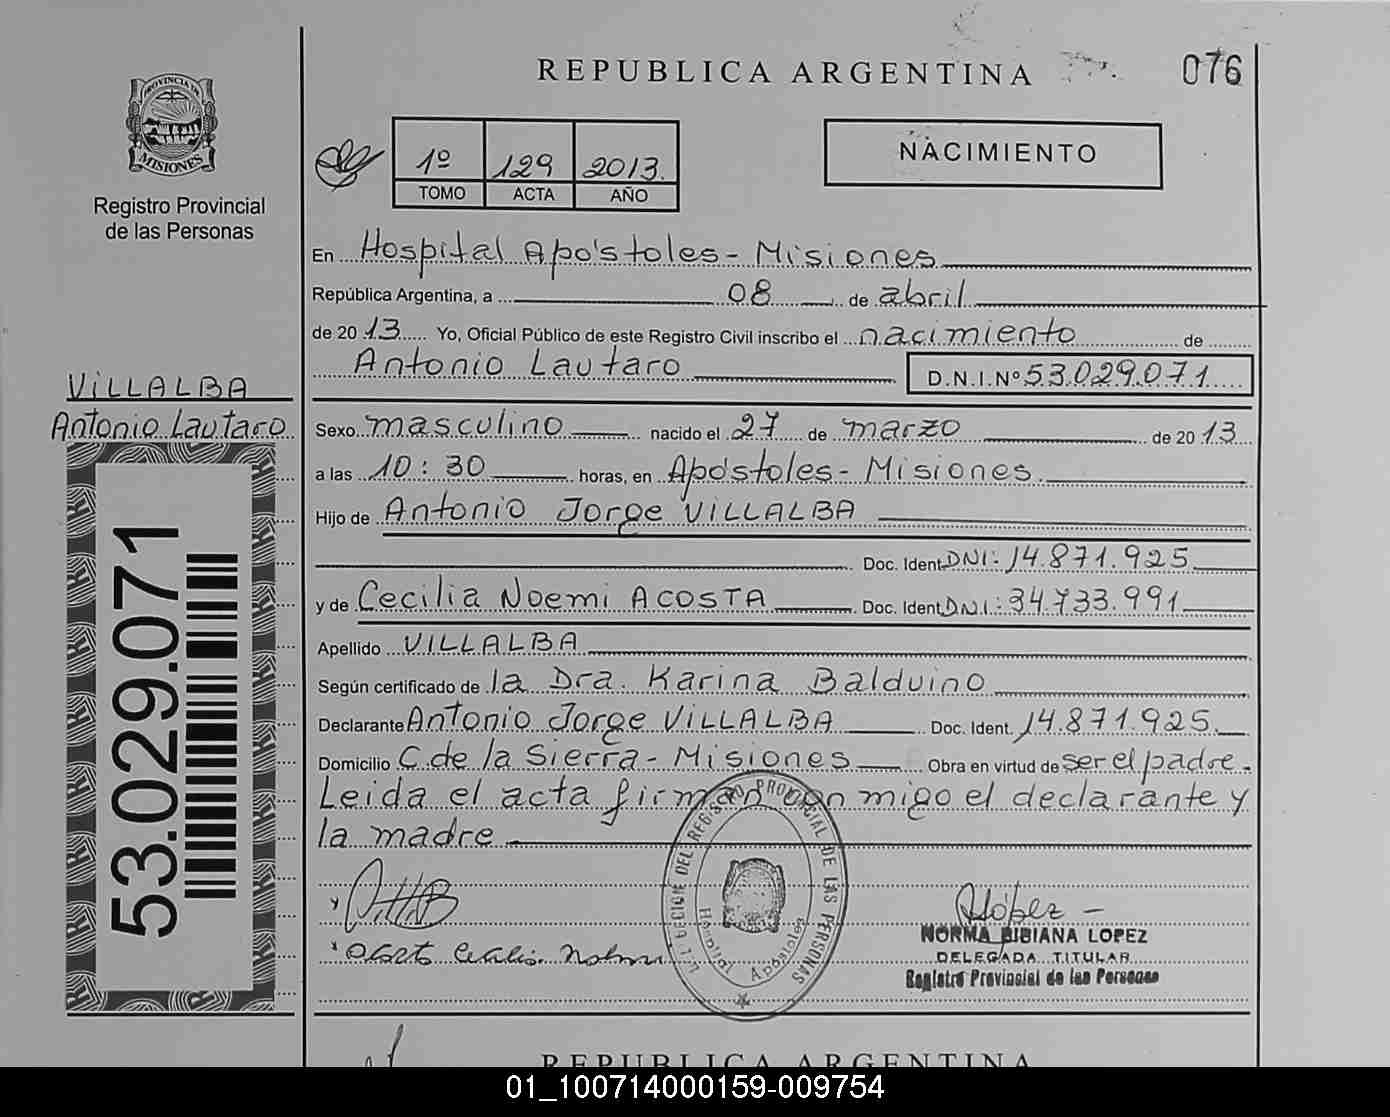 REPUBLICA ARGENTINA
076
PROVINCIA DE
MISIONES
Registro Provincial
de las Personas
1º 129 2013.
TOMO ACTA AÑO
NACIMIENTO
En Hospital Apóstoles - Misiones
República Argentina, a 08 de abril
de 2013 Yo, Oficial Público de este Registro Civil inscribo el nacimiento de
Antonio Lautaro D.N.I.Nº 53.029.071
VILLALBA
Antonio Lautaro
53.029.071
Sexo masculino nacido el 27 de marzo de 2013
a las 10:30 horas, en Apóstoles - Misiones.
Hijo de Antonio Jorge VILLALBA
Doc. Ident. DNI: 14.871.925
y de Cecilia Noemi ACOSTA Doc. Ident. DNI: 34.733.991
Apellido VILLALBA
Según certificado de la Dra. Karina Balduino
Declarante Antonio Jorge VILLALBA Doc. Ident. 14.871.925.
Domicilio C. de la Sierra - Misiones Obra en virtud de ser el padre.
Leida el acta firman conmigo el declarante y
la madre
DEL REGISTRO PROVINCIAL DE LAS PERSONAS
Hospital Apóstoles
López
NORMA BIBIANA LOPEZ
DELEGADA TITULAR
Registro Provincial de las Personas
REPUBLICA ARGENTINA
01_100714000159-009754